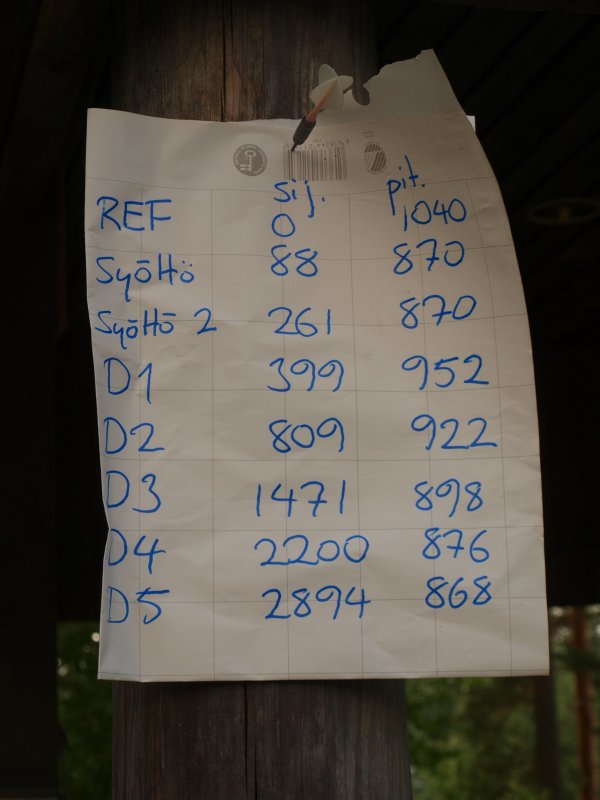 sij. pit.
REF 0 1040
Syöttö 88 870
Syöttö 2 261 870
D1 399 952
D2 809 922
D3 1471 898
D4 2200 876
D5 2894 868